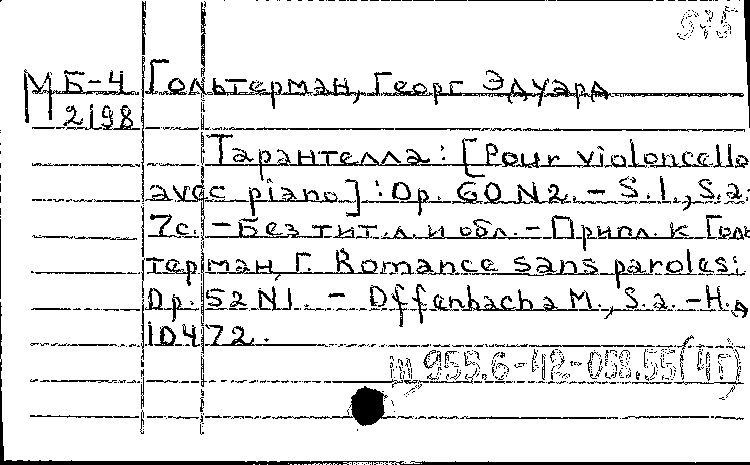 975
М Б-4 Гольтерман, Георг Эдуард
2198
Тарантелла: [Pour violoncello
avec piano]: Op. 60 N2. - S.l., S.a:
7с. - Без тит.л. и обл. - Припл. к Голь
терман, Г. Romance sans paroles:
Op. 52 N1. - Offenbach a M., S.a. - Н.д
10472.
m 955.6-42-058.55(4Г)